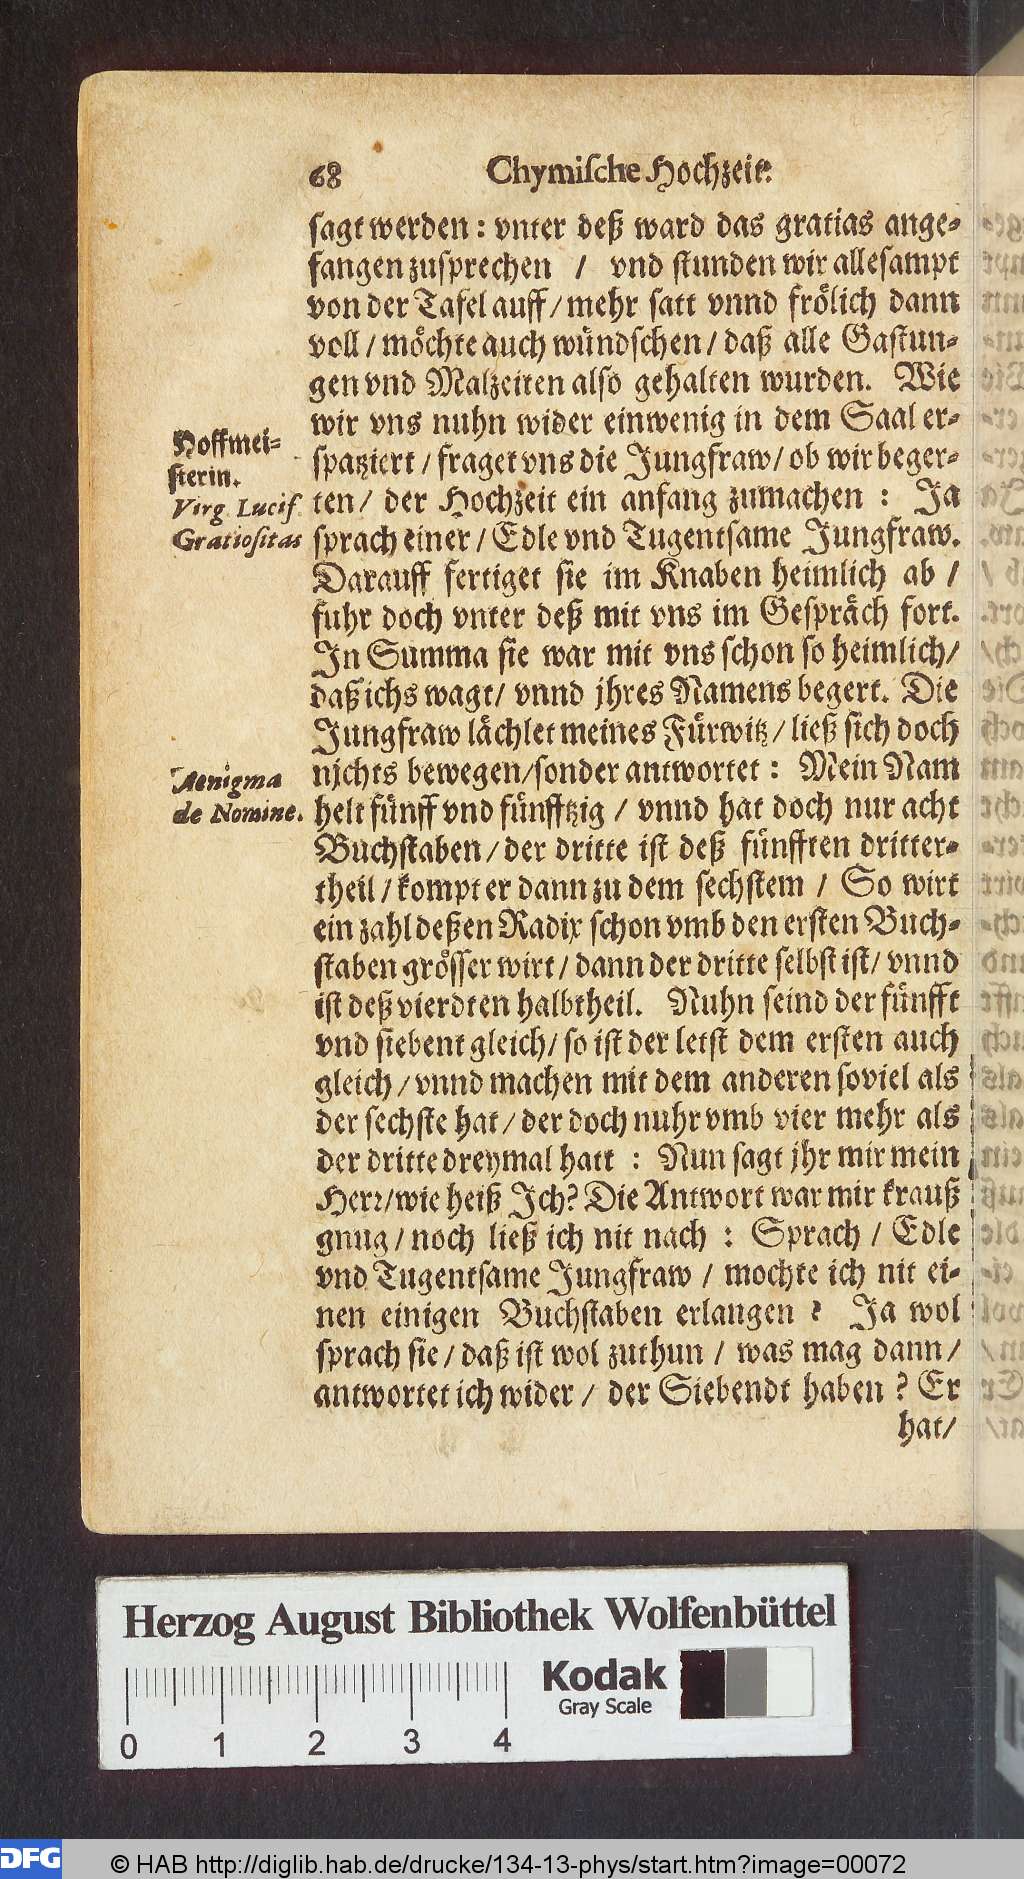 68 Chymische Hochzeit.
sagt werden: vnter deß ward das gratias ange-
fangen zusprechen / vnd stunden wir allesampt
von der Tafel auff / mehr satt vnnd frölich dann
voll / möchte auch wündschen / daß alle Gastun-
gen vnd Malzeiten also gehalten wurden. Wie
wir vns nuhn wider einwenig in dem Saal er-
spatziert / fraget vns die Jungfraw / ob wir beger-
ten / der Hochzeit ein anfang zumachen: Ja
sprach einer / Edle vnd Tugentsame Jungfraw.
Darauff fertiget sie im Knaben heimlich ab /
fuhr doch vnter deß mit vns im Gespräch fort.
In Summa sie war mit vns schon so heimlich /
daß ichs wagt / vnnd jhres Namens begert. Die
Jungfraw lächlet meines Fürwitz / ließ sich doch
njchts bewegen / sonder antwortet: Mein Nam
helt fünff vnd fünfftzig / vnnd hat doch nur acht
Buchstaben / der dritte ist deß fünfften dritter-
theil / kompt er dann zu dem sechstem / So wirt
ein zahl deßen Radix schon vmb den ersten Buch-
staben grösser wirt / dann der dritte selbst ist / vnnd
ist deß vierdten halbtheil. Nuhn seind der fünfft
vnd siebent gleich / so ist der letst dem ersten auch
gleich / vnnd machen mit dem anderen soviel als
der sechste hat / der doch nuhr vmb vier mehr als
der dritte dreymal hatt: Nun sagt jhr mir mein
Herr / wie heiß Ich? Die Antwort war mir krauß
gnug / noch ließ ich nit nach: Sprach / Edle
vnd Tugentsame Jungfraw / mochte ich nit ei-
nen einigen Buchstaben erlangen? Ja wol
sprach sie / daß ist wol zuthun / was mag dann /
antwortet ich wider / der Siebendt haben? Er
hat /
Hoffmei-
sterin.
Virg. Lucif.
Gratiositas
Aenigma
de Nomine.
Herzog August Bibliothek Wolfenbüttel
Kodak
Gray Scale
0 1 2 3 4
DFG
© HAB http://diglib.hab.de/drucke/134-13-phys/start.htm?image=00072